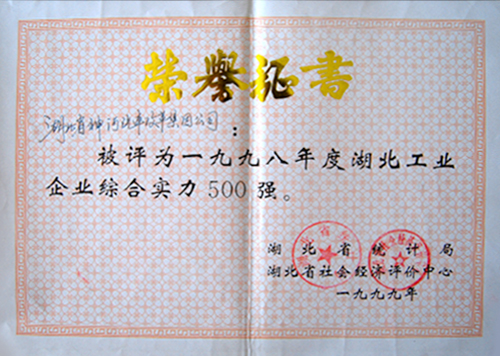 荣誉证书
湖北省神河汽车改装集团公司：
被评为一九九八年度湖北工业
企业综合实力500强。
湖北省统计局
湖北省社会经济评价中心
一九九九年